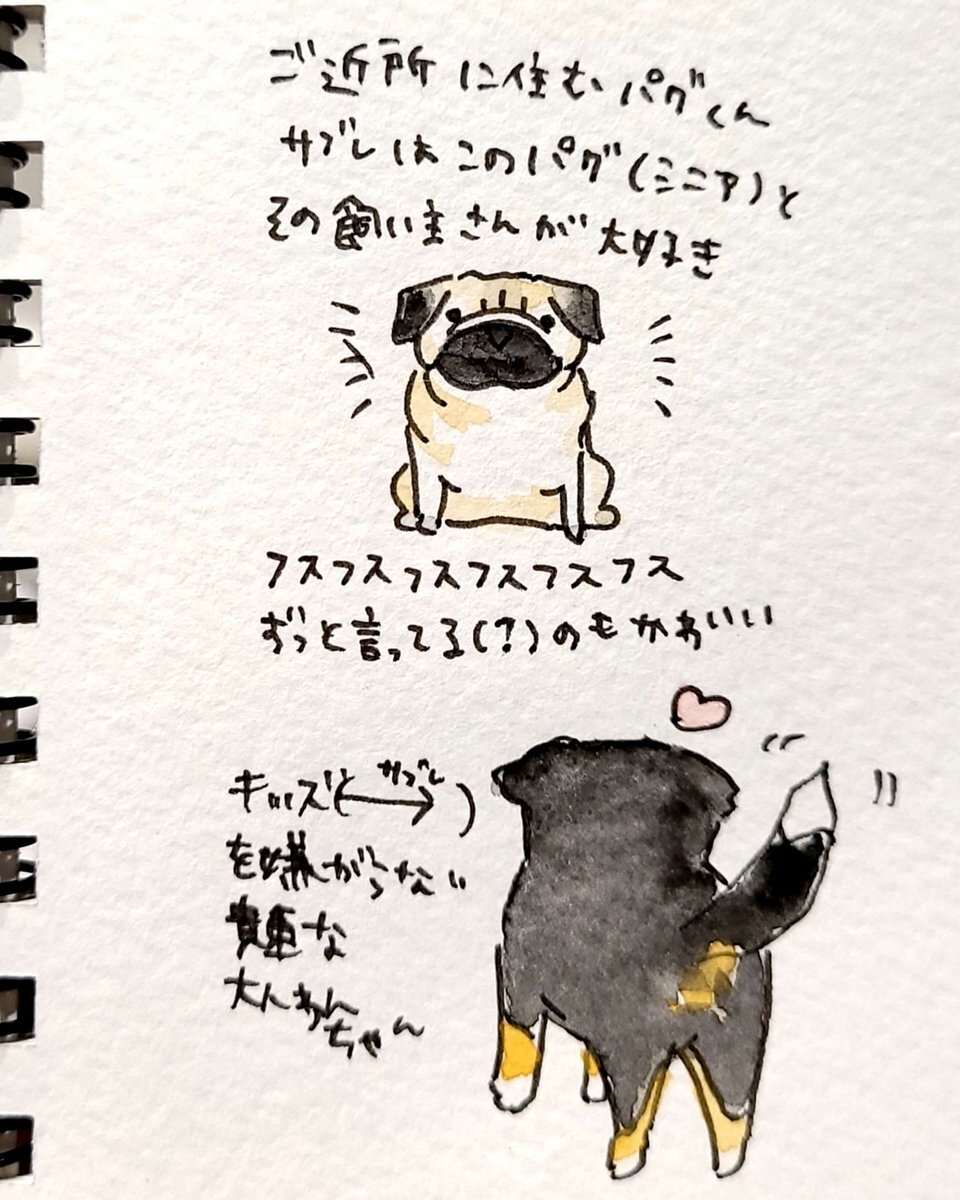 ご近所に住むパグくん
サブレはこのパグ(ミニア)と
その飼い主さんが大好き
フスフスフスフスフスフス
ずっと言ってる(?)のもかわいい
サブレ
キッズ(→)
を嫌がらない
貴重な
大人わん
ちゃん